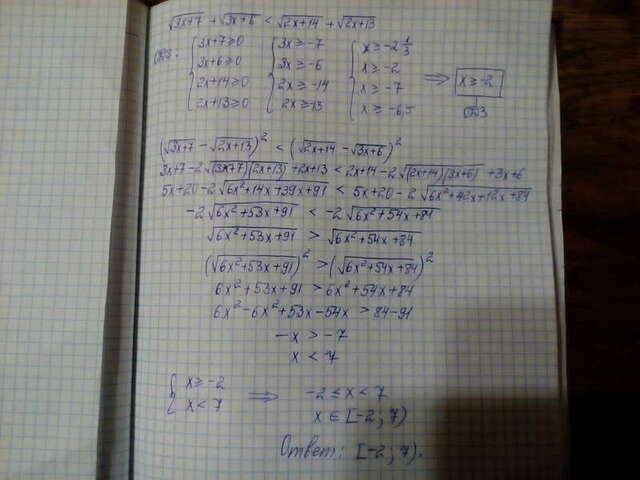 √3x+7 + √3x+6 < √2x+14 + √2x+13
ОДЗ: { 3x+7≥0 { 3x≥-7 { x≥-2 1/3
3x+6≥0 3x≥-6 x≥-2 ⟹ x≥-2
2x+14≥0 2x≥-14 x≥-7 ОДЗ
2x+13≥0 2x≥13 x≥-6,5
(√3x+7 - √2x+13)² < (√2x+14 - √3x+6)²
3x+7-2√(3x+7)(2x+13) +2x+13 < 2x+14-2√(2x+14)(3x+6) +3x+6
5x+20-2√6x²+14x+39x+91 < 5x+20-2√6x²+42x+12x+84
-2√6x²+53x+91 < -2√6x²+54x+84
√6x²+53x+91 > √6x²+54x+84
(√6x²+53x+91)² > (√6x²+54x+84)²
6x²+53x+91 > 6x²+54x+84
6x²-6x²+53x-54x > 84-91
-x > -7
x < 7
{ x≥-2 ⟹ -2≤x<7
x<7 x∈[-2;7)
Ответ: [-2;7).